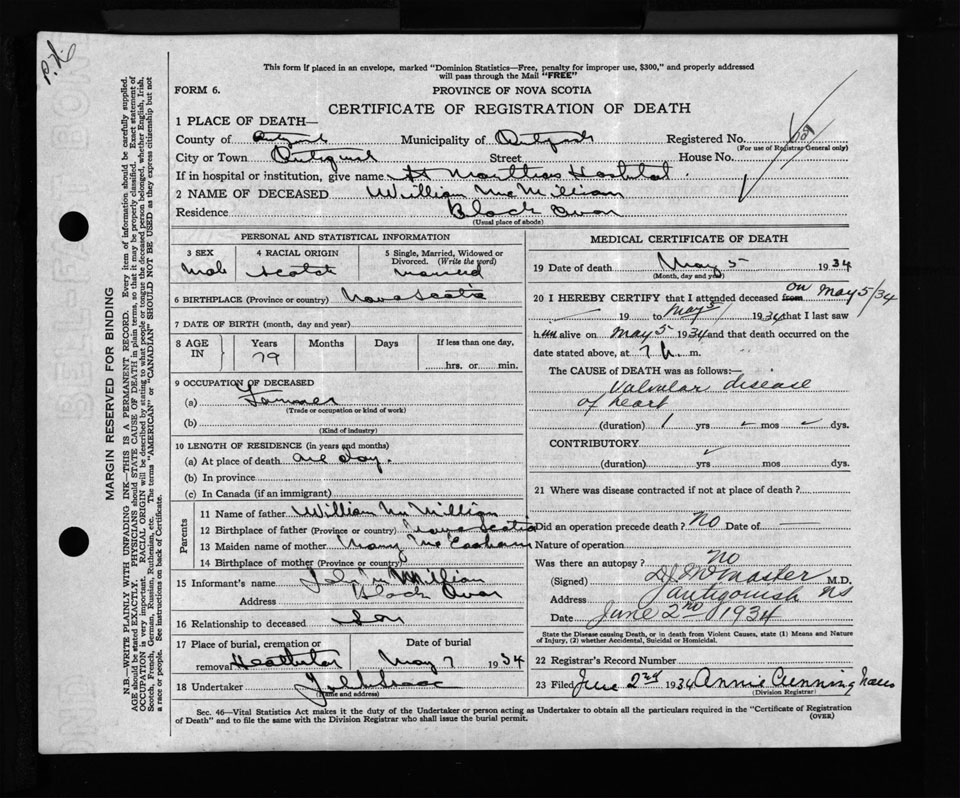 This form if placed in an envelope, marked "Dominion Statistics—Free, penalty for improper use, $300," and properly addressed
will pass through the Mail "FREE"
FORM 6.
PROVINCE OF NOVA SCOTIA
CERTIFICATE OF REGISTRATION OF DEATH
1 PLACE OF DEATH—
County of Municipality of Registered No.
(For use of Registrar General only)
City or Town Street House No.
If in hospital or institution, give name St Marthas Hospital
2 NAME OF DECEASED William McMillian
Residence Black Avon
(Usual place of abode)
PERSONAL AND STATISTICAL INFORMATION
3 SEX 4 RACIAL ORIGIN 5 Single, Married, Widowed or
Divorced. (Write the word)
Male Scotch married
6 BIRTHPLACE (Province or country) Nova Scotia
7 DATE OF BIRTH (month, day and year)
8 AGE IN Years Months Days If less than one day,
79 hrs. or min.
9 OCCUPATION OF DECEASED
(a) Farmer
(Trade or occupation or kind of work)
(b)
(Kind of industry)
10 LENGTH OF RESIDENCE (in years and months)
(a) At place of death one day.
(b) In province
(c) In Canada (if an immigrant)
Parents
11 Name of father William McMillian
12 Birthplace of father (Province or country) Nova Scotia
13 Maiden name of mother Mary
14 Birthplace of mother (Province or country)
15 Informant's name Millian
Address Black Avon
16 Relationship to deceased Son
17 Place of burial, cremation or Date of burial
removal Heatherton May 7 1934
18 Undertaker
(Name and address)
MEDICAL CERTIFICATE OF DEATH
19 Date of death May 5 1934
(Month, day and year)
20 I HEREBY CERTIFY that I attended deceased from on May 5/34
19 to May 5/ 1934 that I last saw
him alive on May 5 1934 and that death occurred on
date stated above, at 7 m.
The CAUSE of DEATH was as follows:—
Valvular disease
of heart
(duration) 1 yrs mos dys.
CONTRIBUTORY
(duration) yrs mos dys.
21 Where was disease contracted if not at place of death?
Did an operation precede death? No Date of —
Nature of operation
Was there an autopsy? No
(Signed) McMaster M.D.
Address Antigonish NS
Date June 2nd 1934
State the Disease causing Death, or in death from Violent Causes, state (1) Means and Nature
of Injury, (2) whether Accidental, Suicidal or Homicidal.
22 Registrar's Record Number
23 Filed June 2nd 1934 Annie Cunningham
(Division Registrar)
Sec. 46—Vital Statistics Act makes it the duty of the Undertaker or person acting as Undertaker to obtain all the particulars required in the "Certificate of Registration
of Death" and to file the same with the Division Registrar who shall issue the burial permit.
(OVER)
MARGIN RESERVED FOR BINDING
N.B.—WRITE PLAINLY WITH UNFADING INK—THIS IS A PERMANENT RECORD. Every item of information should be carefully supplied.
AGE should be stated EXACTLY. PHYSICIANS should STATE CAUSE OF DEATH in plain terms, so that it may be properly classified. Exact statement of
OCCUPATION is very important. RACIAL ORIGIN will be described by stating to what people or tongue the deceased person belonged, whether English, Irish,
Scotch, French, German, Russian, Ruthenian, etc. The terms "AMERICAN" or "CANADIAN" SHOULD NOT BE USED as they express citizenship but not
a race or people. See instructions on back of Certificate.